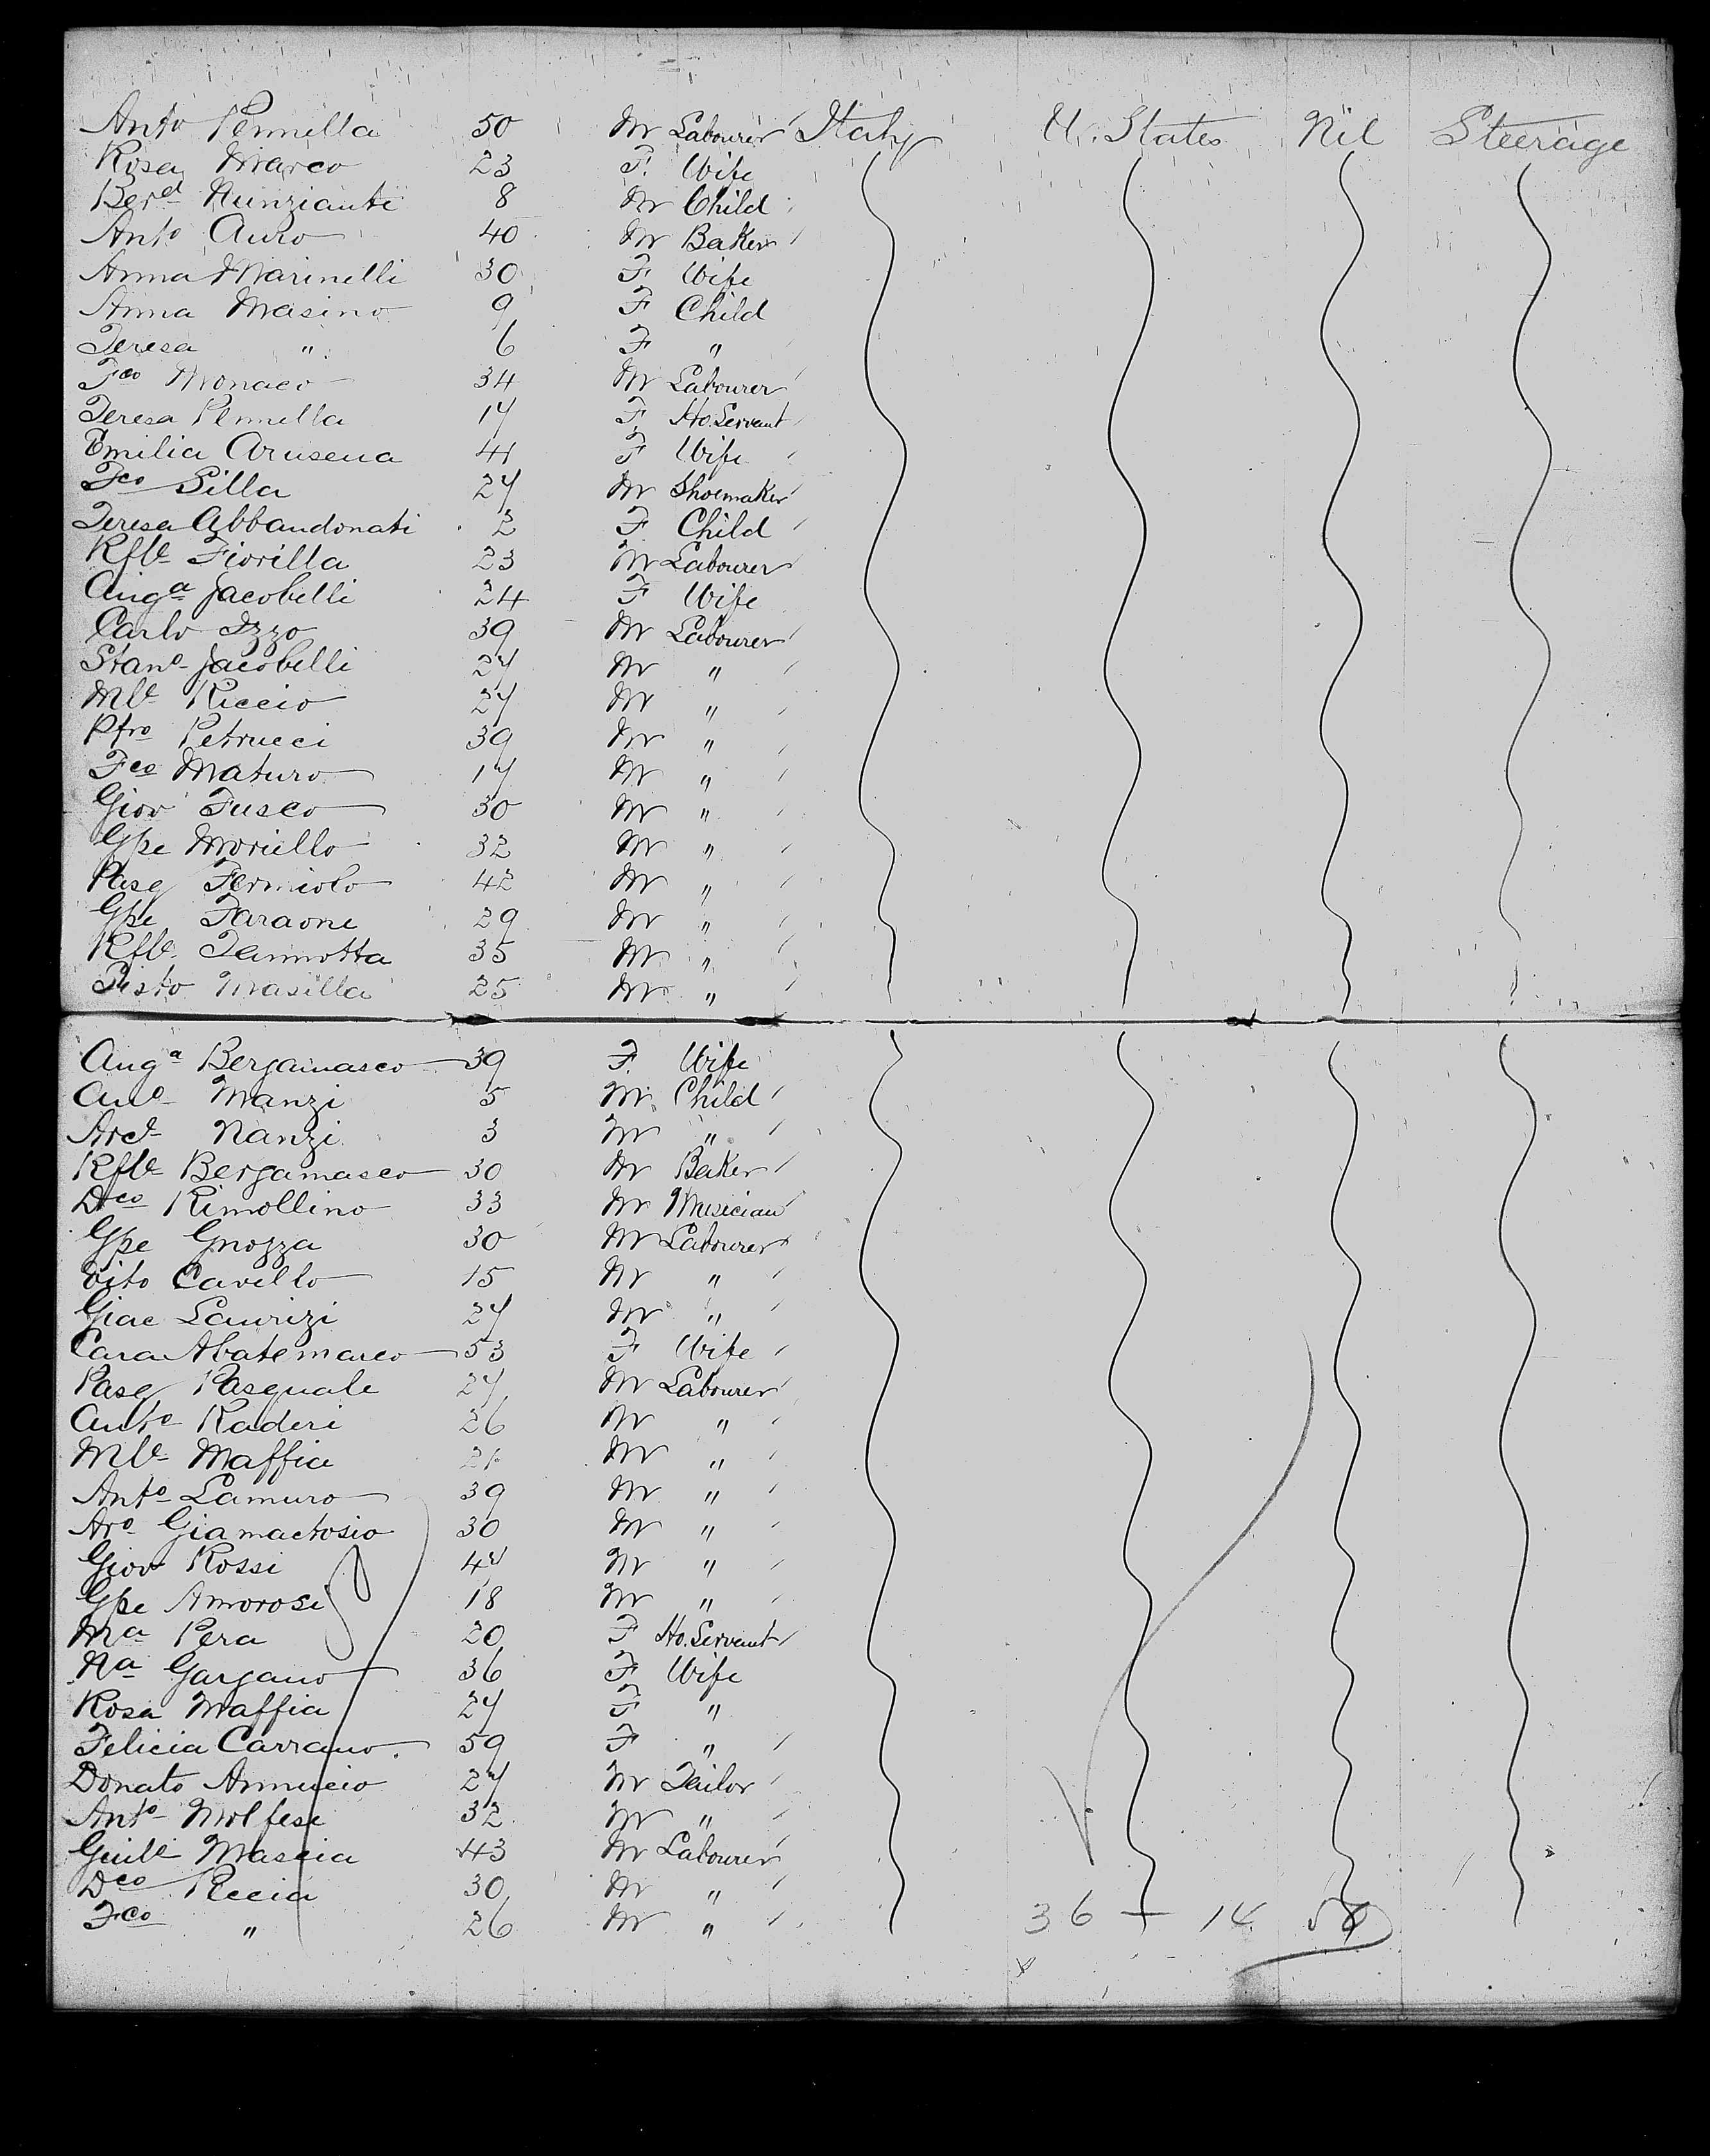 Anto Pennella 50 M Labourer Italy U. States Nil Steerage
Rosa Marco 23 F. Wife
Berd Nunziante 8 M Child
Anto Auro 40 M Baker
Anna Marinelli 30 F Wife
Anna Masino 9 F Child
Teresa " 6 F "
Fco Monaco 34 M Labourer
Teresa Pennella 17 F Ho. Servant
Emilia Arusena 41 F Wife
Fco Silla 27 M Shoemaker
Teresa Abbandonati 2 F Child
Rfle Fiorilla 23 M Labourer
Anga Jacobelli 24 F Wife
Carlo Izzo 39 M Labourer
Stano Jacobelli 27 M "
Mle Riccio 27 M "
Petrucci 39 M "
Fco Maturo 17 M "
Giov Fusco 30 M "
Gpe Moriello 32 M "
Pasq Fermiolo 42 M "
Gpe Faraone 29 M "
Rfle Iannotta 35 M "
Masilla 25 M "
Anga Bergamasco 39 F. Wife
Manzi 5 M Child
Nanzi 3 M "
Rfle Bergamasco 30 M Baker
Dco Rimollino 33 M Musician
Gpe Gnozza 30 M Labourer
Vito Cavello 15 M "
Giac Laurizi 27 M "
Cara Abatemarco 53 F Wife
Pasq Pasquale 27 M Labourer
Anto Raderi 26 M "
Mle Maffia M "
Anto Lamuro 39 M "
Aro Giamactosio 30 M "
Giov Rossi 47 M "
Gpe Amorosi 18 M "
Ma Pera 20 F Ho. Servant
Na Gargano 36 F Wife
Rosa Maffia 27 F "
Felicia Carrano. 59 F "
Donato Annuccio 27 M Tailor
Anto Molfese 32 M "
Mascia 43 M Labourer
Dco Riccia 30 M "
Fco " 26 M "
36 + 14